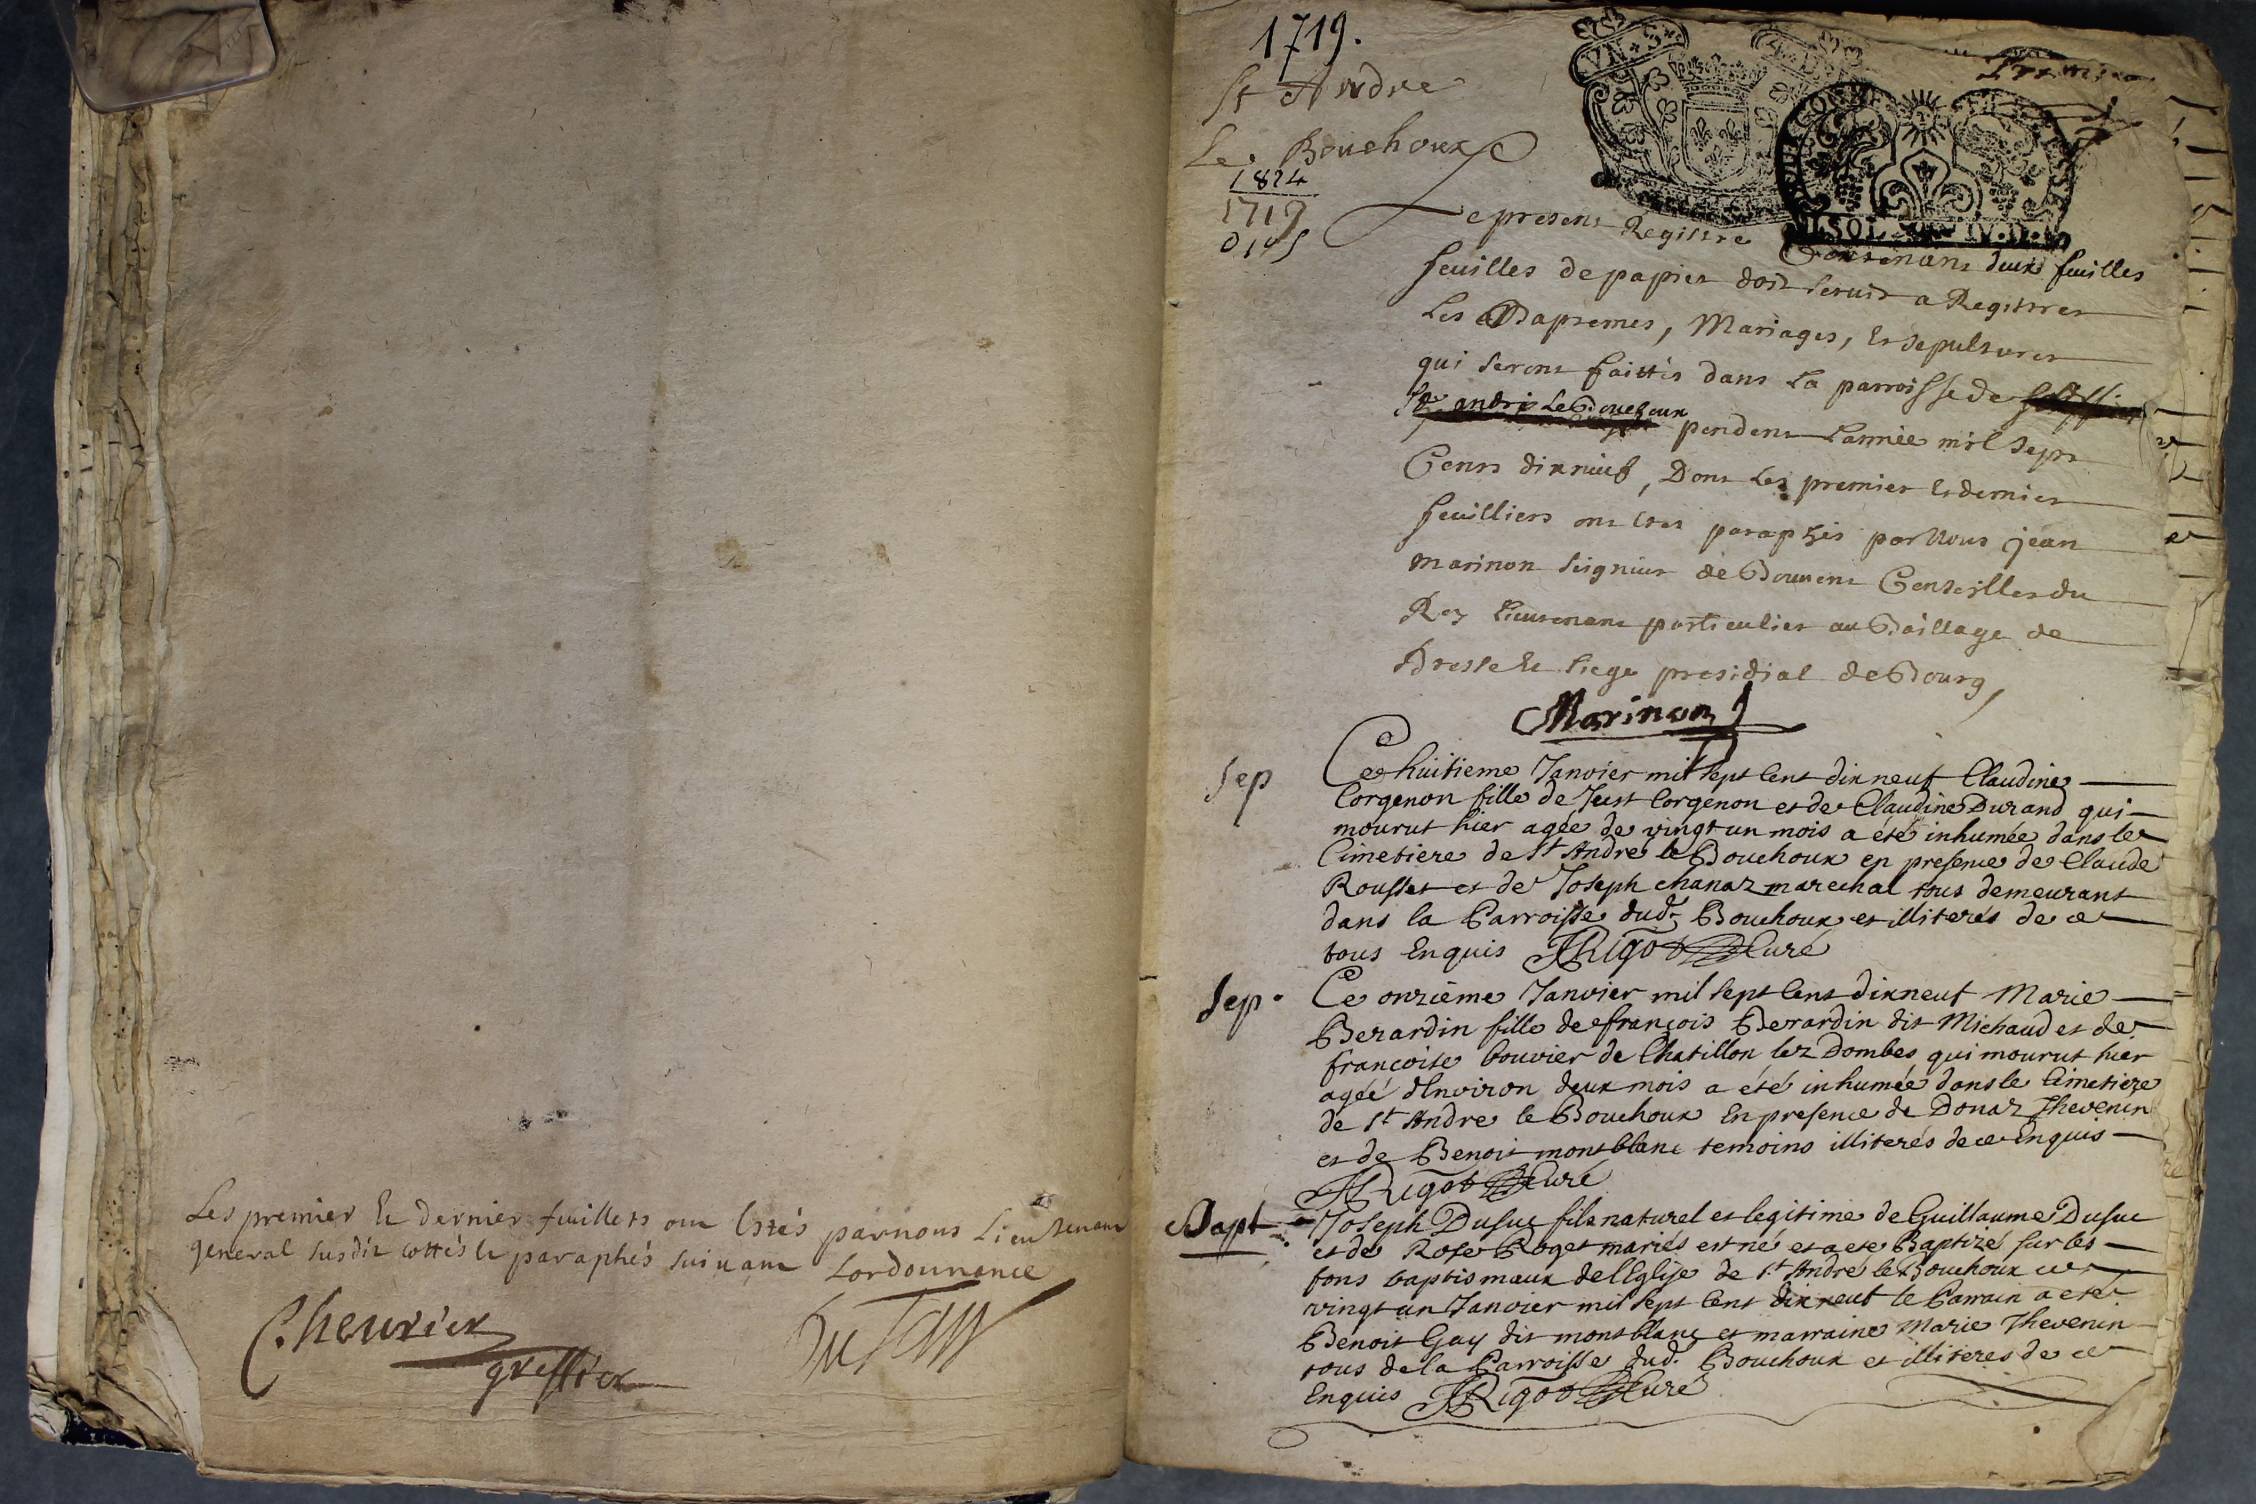 Les premier et dernier feuillets ont estés par nous Lieutenant
general susdit cottés et paraphés suivant Lordonnance
Cheurier
greffier
1719.
St Andre
Le Bouchoux
1824
1719
Premier
Le present Registre Contenant deux feuilles
feuilles de papier doit servir a Registrer
Les Baptemes, Mariages, et sepultures
qui seront faittes dans la parroisse de
St andré Le Bouchoux pendent Lannée mil sept
Cents dixneuf, Dont Les premier et dernier
feuilliers ont estes paraphés par Nous jean
Marinon seigneur de Bouvent Conseiller du
Roy Lieutenant particulier au Baillage de
Bresse et siege presidial de Bourg,
Marinon
Sep
Ce huitieme Janvier mil sept cent dix neuf Claudine
Corgenon fille de Just Corgenon et de Claudine Durand qui
mourut hier agée de vingt un mois a été inhumée dans le
Cimetiere de St André le Bouchoux en presence de Claude
Rousset et de Joseph chanaz marechal tous demeurant
dans la Parroisse dud. Bouchoux et illiterés de ce
tous Enquis JRigod Curé
Sep.
Ce onzième Janvier mil sept cent dixneuf Marie
Berardin fille de françois Berardin dit Michaud et de
françoise bouvier de Chatillon lez Dombes qui mourut hier
agéé dEnviron deux mois a été inhumée dans le Cimetiere
de St Andre le Bouchoux En presence de Donaz Thevenin
et de Benoit montblanc temoins illiterés de ce Enquis
JRigod Curé
Bapt
Joseph Dusuc fils naturel et legitime de Guillaume Dusuc
et de Rose Roget mariés est né et a ete Baptizé sur les
fons baptismaux de l'Eglise de St André le Bouchoux ce
vingt un Janvier mil sept cent dix neuf le Parrain a eté
Benoit Gay dit montblanc et marraine Marie Thevenin
tous de la Parroisse dud. Bouchoux et illiteres de ce
Enquis JRigod Curé